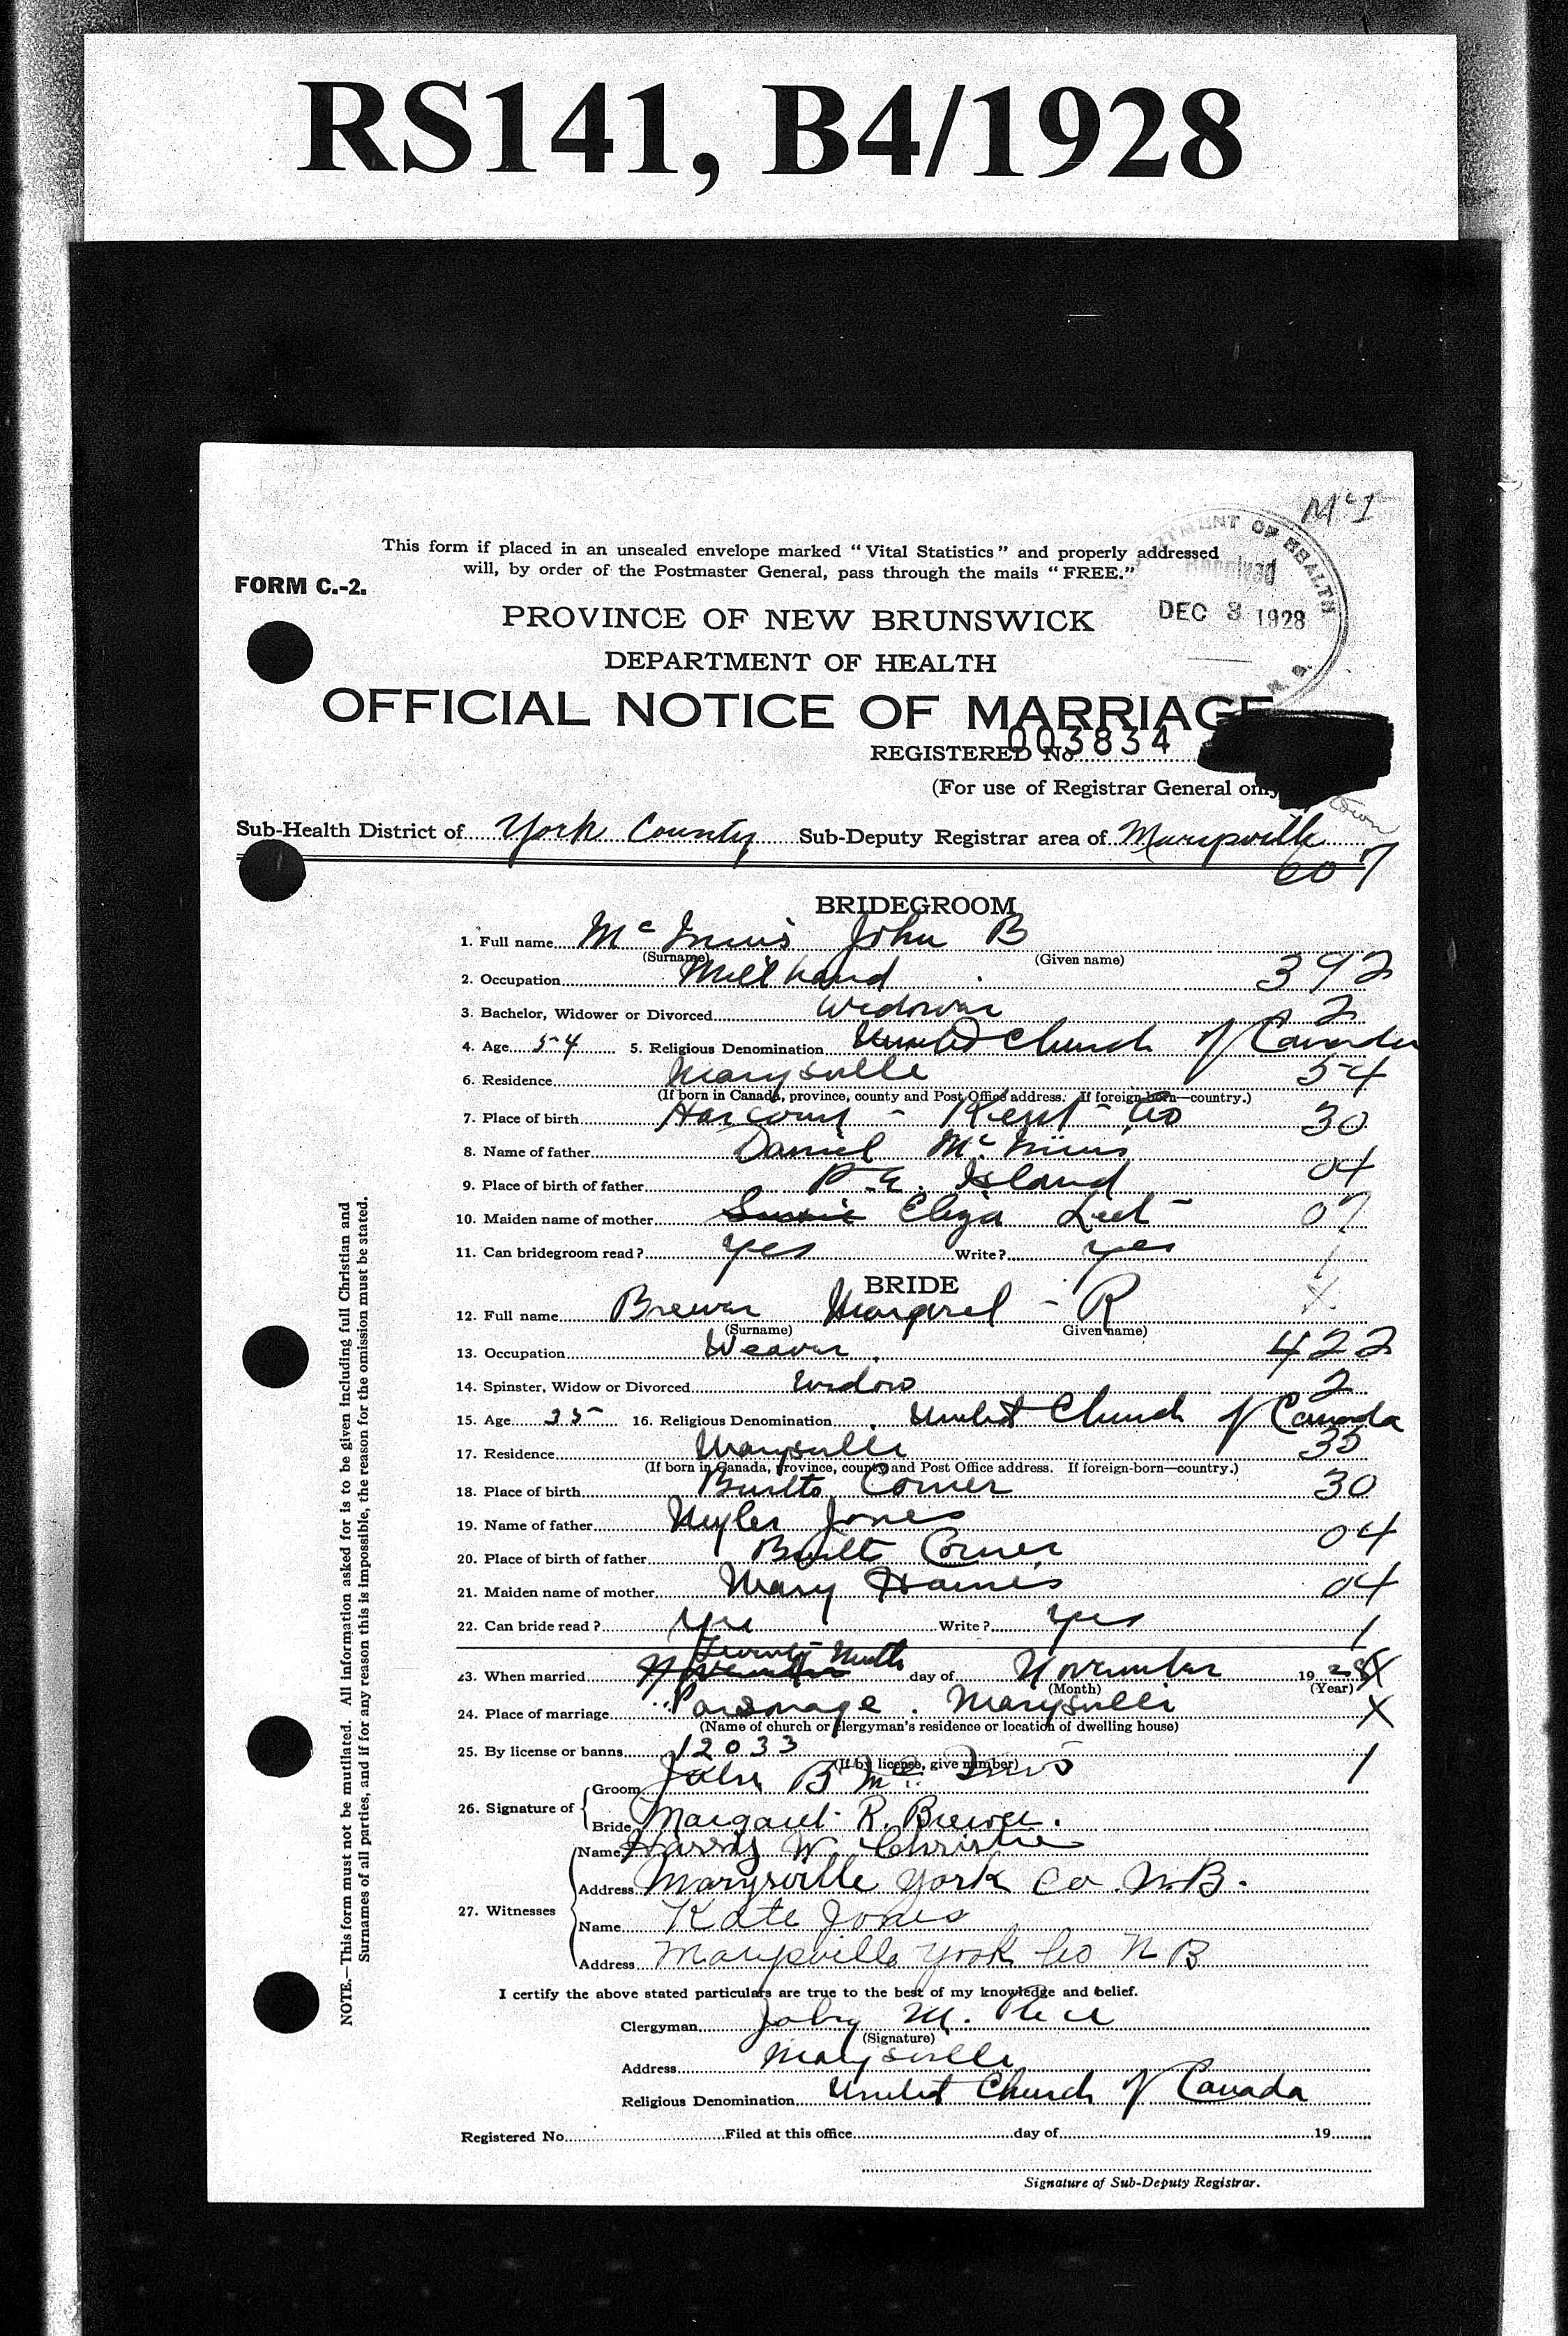 RS141, B4/1928
McI
This form if placed in an unsealed envelope marked "Vital Statistics" and properly addressed
will, by order of the Postmaster General, pass through the mails "FREE."
FORM C.-2.
OF HEALTH
Received
DEC 3 1928
PROVINCE OF NEW BRUNSWICK
DEPARTMENT OF HEALTH
OFFICIAL NOTICE OF MARRIAGE
REGISTERED No. 003834
(For use of Registrar General only
town
Sub-Health District of York County Sub-Deputy Registrar area of Marysville
607
BRIDEGROOM
1. Full name McInnis John B
(Surname) (Given name)
2. Occupation Mill hand 392
3. Bachelor, Widower or Divorced Widower 2
4. Age 54 5. Religious Denomination United Church of Canada
6. Residence Marysville 54
(If born in Canada, province, county and Post Office address. If foreign-born—country.)
7. Place of birth Harcourt - Kent - Co 30
8. Name of father Daniel McInnis 04
9. Place of birth of father P.E. Island
10. Maiden name of mother Susie Eliza 07
11. Can bridegroom read? yes Write? yes 1
X
BRIDE
12. Full name Brewer Margaret - R
(Surname) Given name)
13. Occupation Weaver 422
14. Spinster, Widow or Divorced Widow 2
15. Age 35 16. Religious Denomination United Church of Canada
17. Residence Marysville 35
(If born in Canada, province, county and Post Office address. If foreign-born—country.)
18. Place of birth Burtts Corner 30
19. Name of father Jones 04
20. Place of birth of father Burtts Corner
21. Maiden name of mother Mary Haines 04
22. Can bride read? yes Write? yes 1
Twenty Ninth
23. When married November day of November 1928 X
(Month) (Year)
24. Place of marriage Parsonage. Marysville X
(Name of church or clergyman's residence or location of dwelling house)
25. By license or banns 12033 1
(If by license, give number)
26. Signature of
Groom John B McInnis
Bride Margaret R. Brewer.
27. Witnesses
Name Harry W. Christie
Address Marysville York Co. N.B.
Name Kate Jones
Address Marysville York Co N B
I certify the above stated particulars are true to the best of my knowledge and belief.
Clergyman M. Rice
(Signature)
Address Marysville
Religious Denomination United Church of Canada
Registered No. Filed at this office day of 19
Signature of Sub-Deputy Registrar.
NOTE.—This form must not be mutilated. All information asked for is to be given including full Christian and
Surnames of all parties, and if for any reason this is impossible, the reason for the omission must be stated.